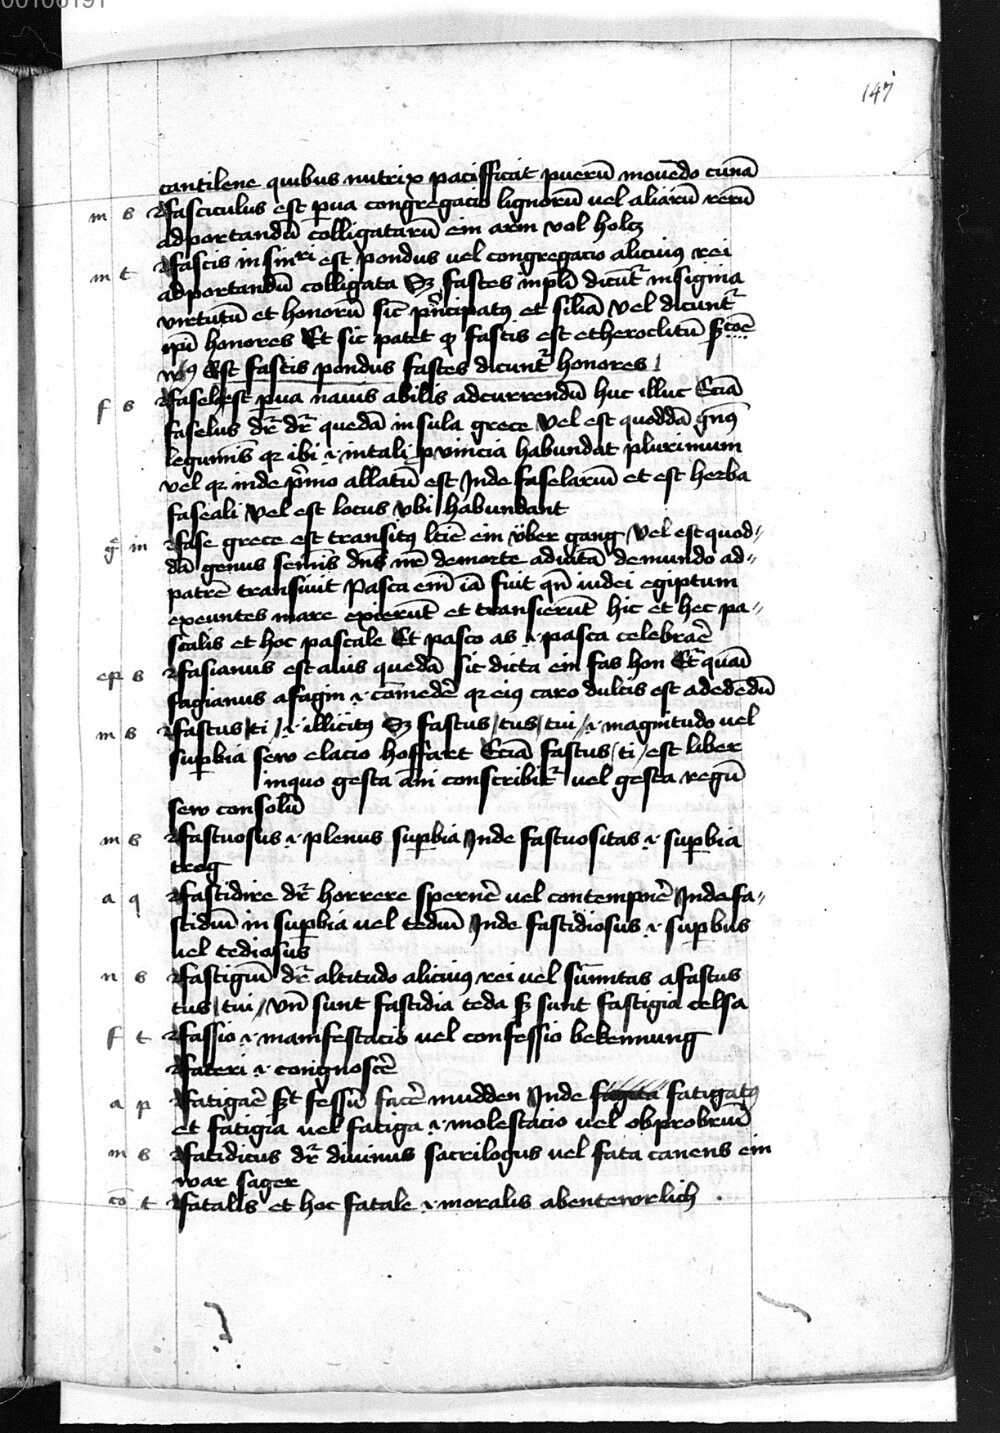 147
cantilene quibus nutrix pacifficat puerū mouēdo cunā
m s Fasciculus est pua congregacio lignorū uel aliarū rerū
adportandū colligatarū ein arm vol holcz
m t Fascis in sinᵍʳⁱ est pondus uel congregacio alicuiꝰ rei
adportandū colligata Sꝫ fasces inplī dicūt insignia
virtutū et honorū sic pncipatꝰ et siliā Vel dicuntʳ
ipī honores Et sic patet ꝙ fascis est etheroclitū
Est fascis pondus fasces dicuntʳ honores
f s Fasel est pua nauis abilis adcurrendū huc illuc Eciā
faselus dr̄ dr̄ quedā insula grece Vel est quoddā gnꝰ
leguminis qr ibi ⁊ intali pvincia habundat plurimum
vel qr inde pmo allatū est Inde faselariū et est herba
faseali Vel est locus vbi habundant
g in Fase grece est transitꝰ ltīe ein v̈ber gang Vel est quod⸗
dā genus seminis dn̄s nr̄ demorte aduitā demundo ad⸗
patrē transiuit Pasca eni iā fuit qn̄ iudei egiptum
exeuntes mare exierūt et transierūt hic et hec pa⸗
scalis et hoc pascale Et pasco as .i. pasca celebraē
ep s Fasianus est auis quedā sic dicta ein fas hon Et quāi
fagianus afagin .i. comedē qr eiꝰ caro dulcis est adedēdū
m s Fastus / ti / .i. illicitꝰ Sꝫ fastus / tus / tui / .i. magnitudo uel
supbia sew elacio hoffart Eciā fastus / ti / est liber
inquo gesta āni conscribitʳ uel gesta regū
sew consolū
m s Fastuosus .i. plenus supbia Inde fastuositas .i. supbia
treg
a q Fastidire dr̄ horrere spernē uel contempnē Inde fa⸗
stidiū in supbia uel tediū Inde fastidiosus .i. supbus
uel tediosus
n s Fastigiū dr̄ altitudo alicuiꝰ rei uel sūmitas afastus
tus / tui / vn̄ sunt fastidia teda sꝫ sunt fastigia celsa
f t Fassio .i. manifestacio uel confessio bekennung
Fateri .i. congnoscē
a p Fatigaē fessū facē mudden Inde fatigatꝰ
et fatigia uel fatiga .i. molestacio uel obprobriū
m s Fatidicus dr̄ diuinus sacrilogus uel fata canens ein
war sager
co t Fatalis et hoc fatale .i. moralis abentewrlich